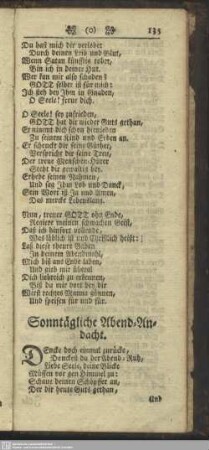 (0) 135
Du hast mich dir verlobet
Durch deinen Leib und Blut,
Wenn Satan sonsten tobet,
Bin ich in deiner Hut.
Wer kan mir also schaden?
GOTT selber ist für mich:
Ich steh bey Ihm in Gnaden,
O Seele! freue dich.
O Seele! sey zufrieden,
GOTT hat dir wieder Guts gethan,
Er nimmt dich schon hienieden
Zu seinem Kind und Erben an.
Er schencket dir seine Güther,
Verspricht dir seine Treu,
Der treue Menschen-Hüter
Steht dir
Erhebe seinen Nahmen,
Und sag Ihm Lob und Danck,
Sein Wort ist Ja und Amen,
Das mercke Lebenslang.
Nun, treuer GOTT ohn Ende,
Regiere meinen schwachen Geist,
Daß ich hinfort vollende,
Was löblich ist und Christlich heist:
Laß diese theure Gaben
In deinem Abendmahl,
Mich biß ans Ende laben,
Und gieb mir überal
Dich liebreich zu erkennen,
Biß du mir dort bey dir
Wirst rechte Wonne gönnen,
Und speisen für und für.
Sonntägliche Abend-An-
dacht.
DEncke doch einmal zurücke,
Dencke da der Abend-Ruh,
Liebe Seele, deine Blicke
Müssen vor gen Himmel zu:
Schaue deinen Schöpffer an,
Der dir heute Guts gethan,
Und